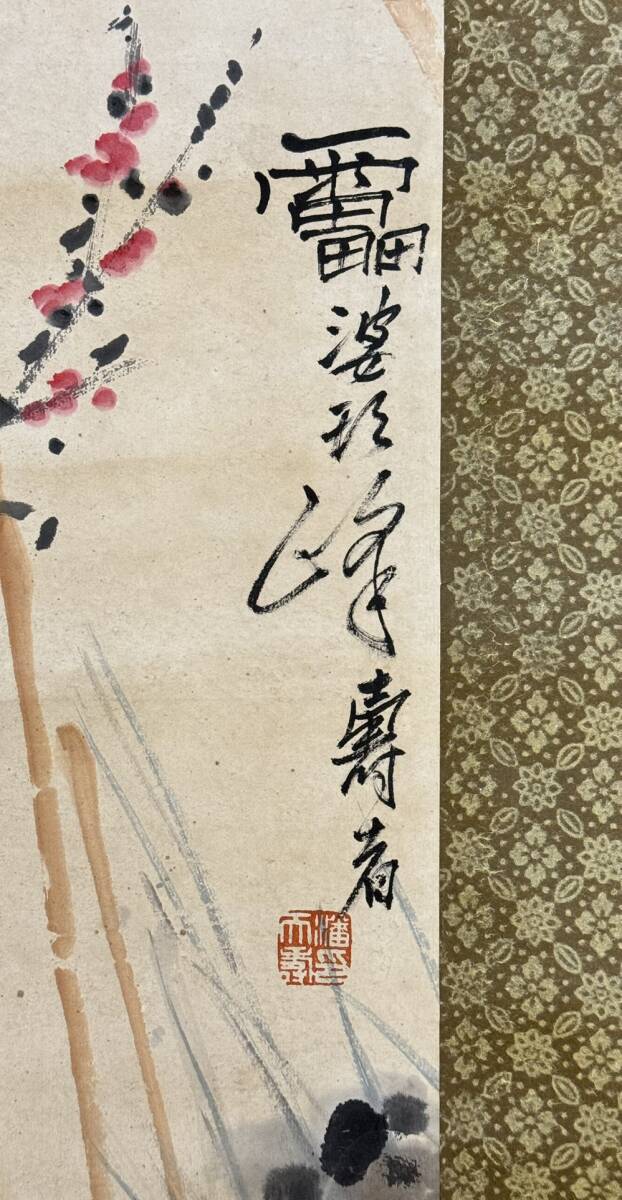 靁婆頭峰壽者
潘天壽印